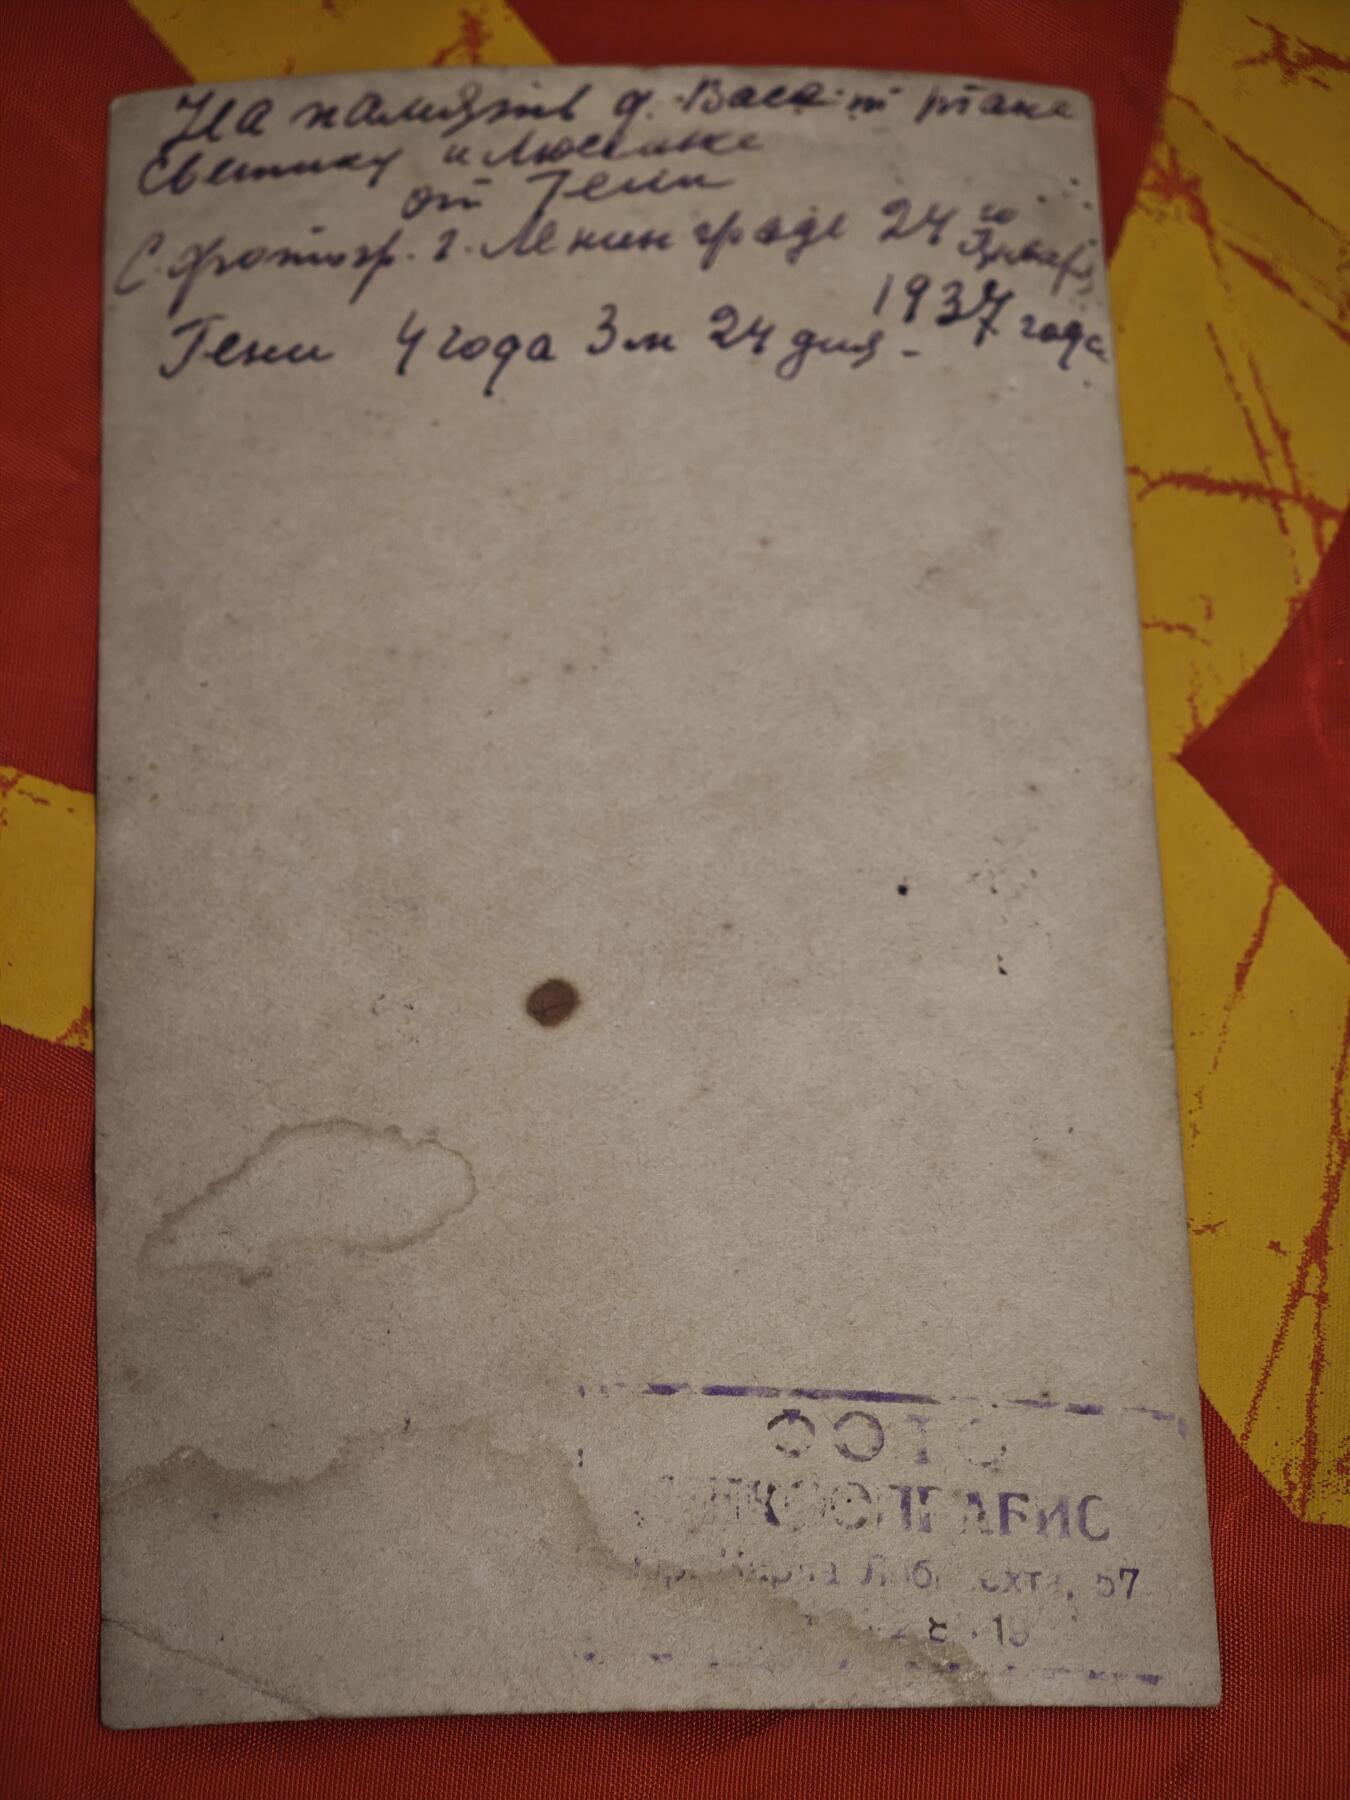 На память д. Васе т. Тане
Светику и Люсеньке
от Гени
С. фотогр. г. Ленинграде 24го Января
1937 года
Гени 4 года 3 м 24 дня -
Карла Либкнехта, 57